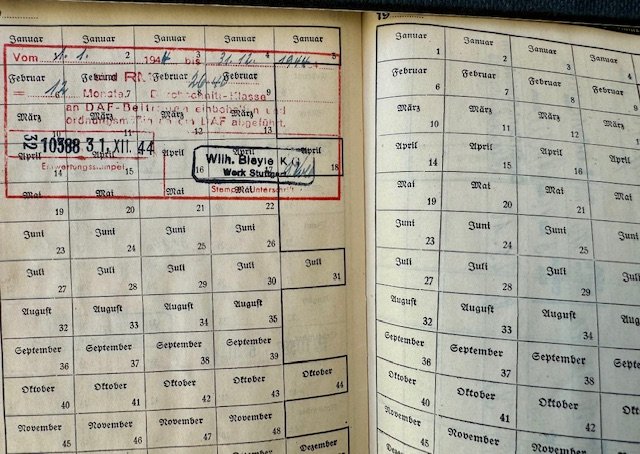 Januar Januar Januar Januar Januar
1 2 3 4 5
Vom 1. 1. 1944 bis 31.12. 1944.
Februar Februar Februar Februar
6 7 8 9
= 12 RM 26 40
Monate. Durchschnitts-Klasse
an DAF-Beiträgen einbehalten und
ordnungsmäßig an die DAF abgeführt.
März März März März
10 11 12 13
32 10388 31.XII.44
Entwertungsstempel
April April April April April
14 15 16 17 18
Wilh. Bleyle K.G.
Werk Stuttgart
Stempel Unterschrift
Mai Mai Mai Mai
19 20 21 22
Juni Juni Juni Juni
23 24 25 26
Juli Juli Juli Juli Juli
27 28 29 30 31
August August August August
32 33 34 35
September September September September
36 37 38 39
Oktober Oktober Oktober Oktober Oktober
40 41 42 43 44
November November November November
45 46 47 48
Dezember
19
Januar Januar Januar Januar
1 2 3 4
Februar Februar Februar
6 7 8
März März März
10 11 12
April April April
14 15 16
Mai Mai Mai
19 20 21
Juni Juni Juni
23 24 25
Juli Juli Juli
27 28 29
August August August
32 33 34
September September September
36 37 38
Oktober Oktober Oktober
40 41 42
November November
45